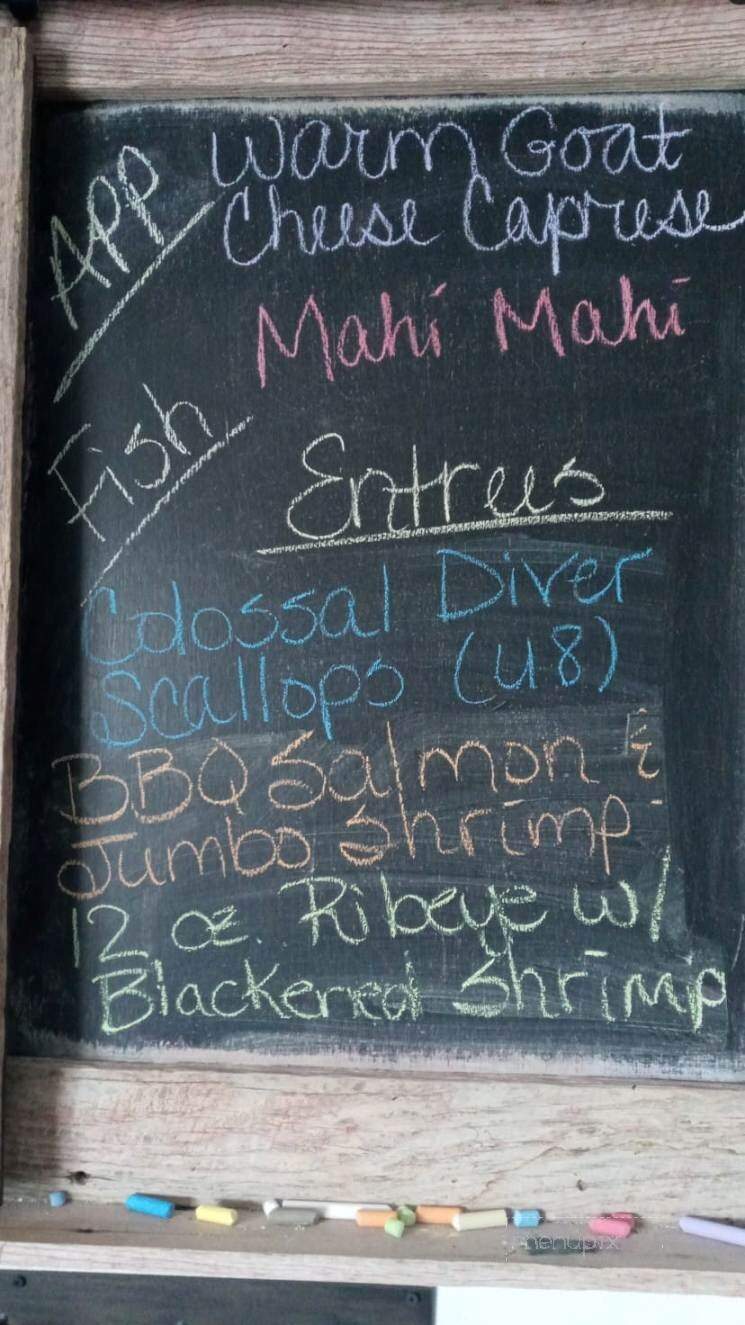 APP
Warm Goat
Cheese Caprese
Fish
Mahi Mahi
Entrees
Colossal Diver
Scallops (U8)
BBQ Salmon &
Jumbo Shrimp
12 oz. Ribeye w/
Blackened Shrimp
menupix